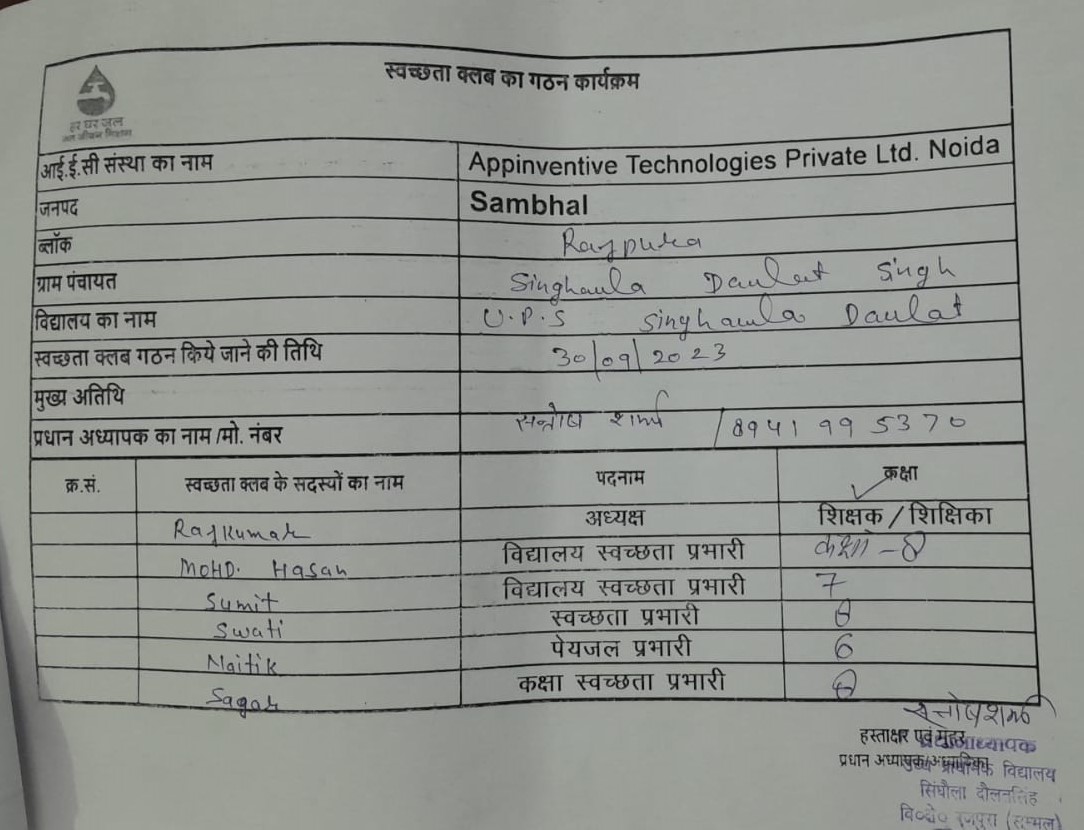 स्वच्छता क्लब का गठन कार्यक्रम
हर घर जल
जल जीवन मिशन
आई.ई.सी संस्था का नाम Appinventive Technologies Private Ltd. Noida
जनपद Sambhal
ब्लॉक Rajpura
ग्राम पंचायत Singhaula Daulat Singh
विद्यालय का नाम U.P.S Singhaula Daulat
स्वच्छता क्लब गठन किये जाने की तिथि 30/09/2023
मुख्य अतिथि
प्रधान अध्यापक का नाम/मो. नंबर सन्तोष शर्मा / 8941995370
क्र.सं. स्वच्छता क्लब के सदस्यों का नाम पदनाम कक्षा
Rajkumar अध्यक्ष शिक्षक / शिक्षिका
MOHD. Hasan विद्यालय स्वच्छता प्रभारी कक्षा - 8
Sumit विद्यालय स्वच्छता प्रभारी 7
Swati स्वच्छता प्रभारी
Naitik पेयजल प्रभारी 6
Sagar कक्षा स्वच्छता प्रभारी
सन्तोष शर्मा
हस्ताक्षर एवं मुहर
प्रधान अध्यापक/अध्यापिका
विद्यालय
सिंघौला दौलतसिंह
वि०क्षे० रजपुरा (सम्भल)